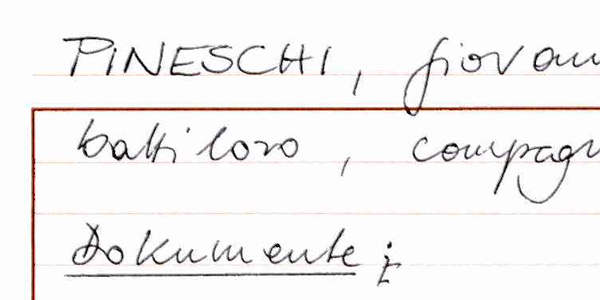 PINESCHI, giovan
battiloro, compagn
Dokumente: